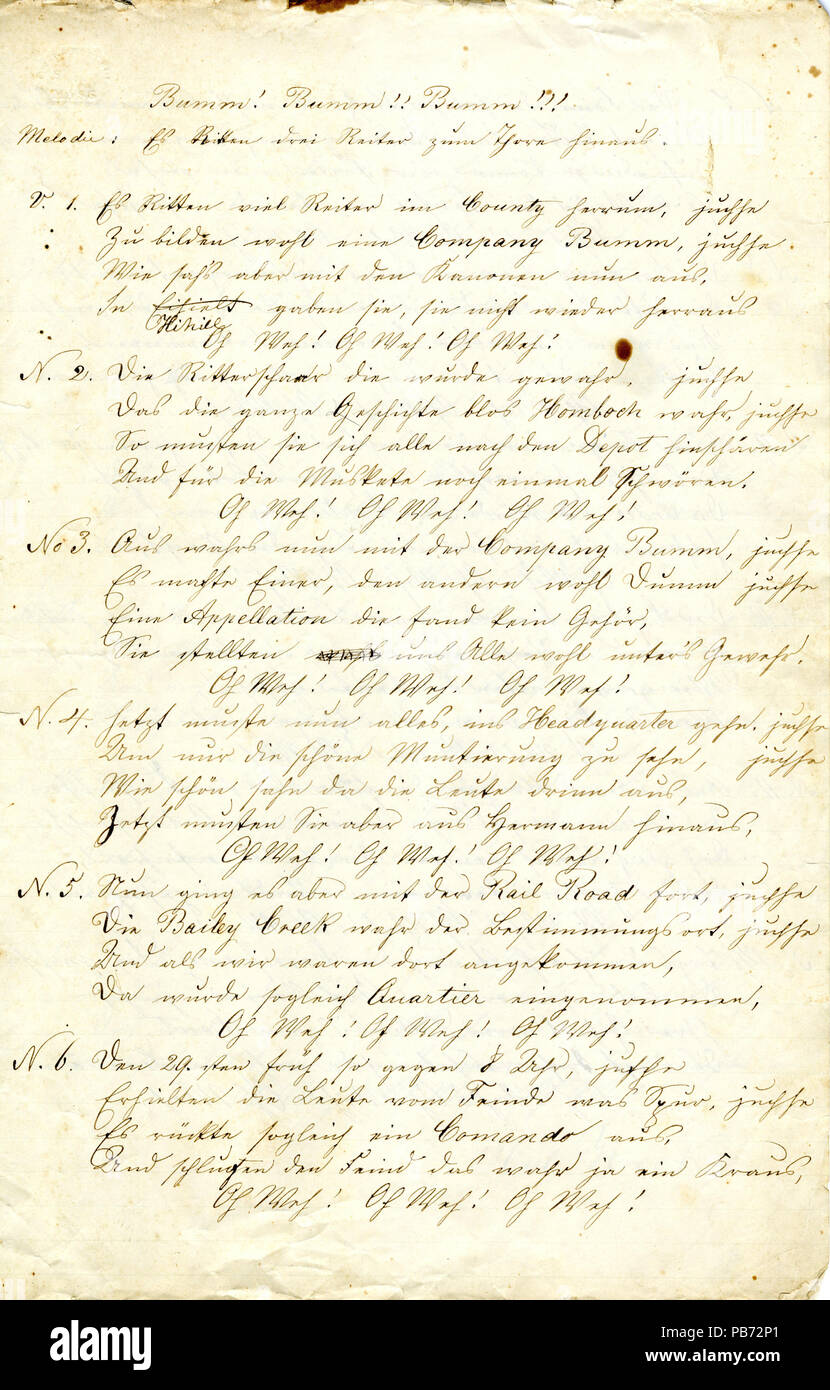 Bumm! Bumm!! Bumm!!!
Melodie: Es Ritten drei Reiter zum Thore hinaus.
V. 1. Es Ritten viel Reiter im County herrum, juchhe
Zu bilden wohl eine Company Bumm, juchhe.
Wie sah's aber mit den Kanonen nun aus,
In gaben sie, sie nicht wieder herraus
Oh Weh! Oh Weh! Oh Weh!
N. 2. Die Ritterschaar die wurde gewahr, juchhe
Das die ganze Geschichte blos Homboch wahr, juchhe
So musten sie sich alle nach den Depot hinschären
Und für die Muskete noch einmal Schwören.
Oh Weh! Oh Weh! Oh Weh!
No 3. Aus wahrs nun mit der Company Bumm, juchhe
Es machte Einer, den andern wohl Dumm juchhe
Eine Appellation die fand kein Gehör,
Sie stellten uns Alle wohl unter's Gewehr.
Oh Weh! Oh Weh! Oh Weh!
N. 4. Jetzt muste nun alles, ins Headquarter gehn. juchhe
Um nur die schöne Muntierung zu sehn, juchhe
Wie schön sahn da die Leute drinn aus,
Jetzt musten Sie aber aus Hermann hinaus,
Oh Weh! Oh Weh! Oh Weh!
N. 5. Nun ging es aber mit der Rail Road fort, juchhe
Die Bailey Creek wahr der Bestimmungsort, juchhe
Und als wir waren dort angekommen,
Da wurde sogleich Quartier eingenommen,
Oh Weh! Oh Weh! Oh Weh!
N. 6. Den 29.sten früh so gegen 8 Uhr, juchhe
Erhielten die Leute vom Feinde was Spur, juchhe
Es rückte sogleich ein Comando aus,
Und schlugen den Feind das wahr ja ein Kraus,
Oh Weh! Oh Weh! Oh Weh!
alamy
Image ID: PB72P1
www.alamy.com